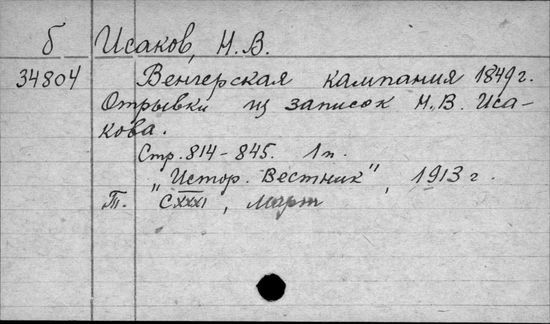 б Исаков, Н.В.
34804 Венгерская кампания 1849 г.
Отрывки из записок Н.В. Иса-
кова.
Стр. 814-845. 1 п.
"Истор. Вестник", 1913 г.
Т. CXXXI, март